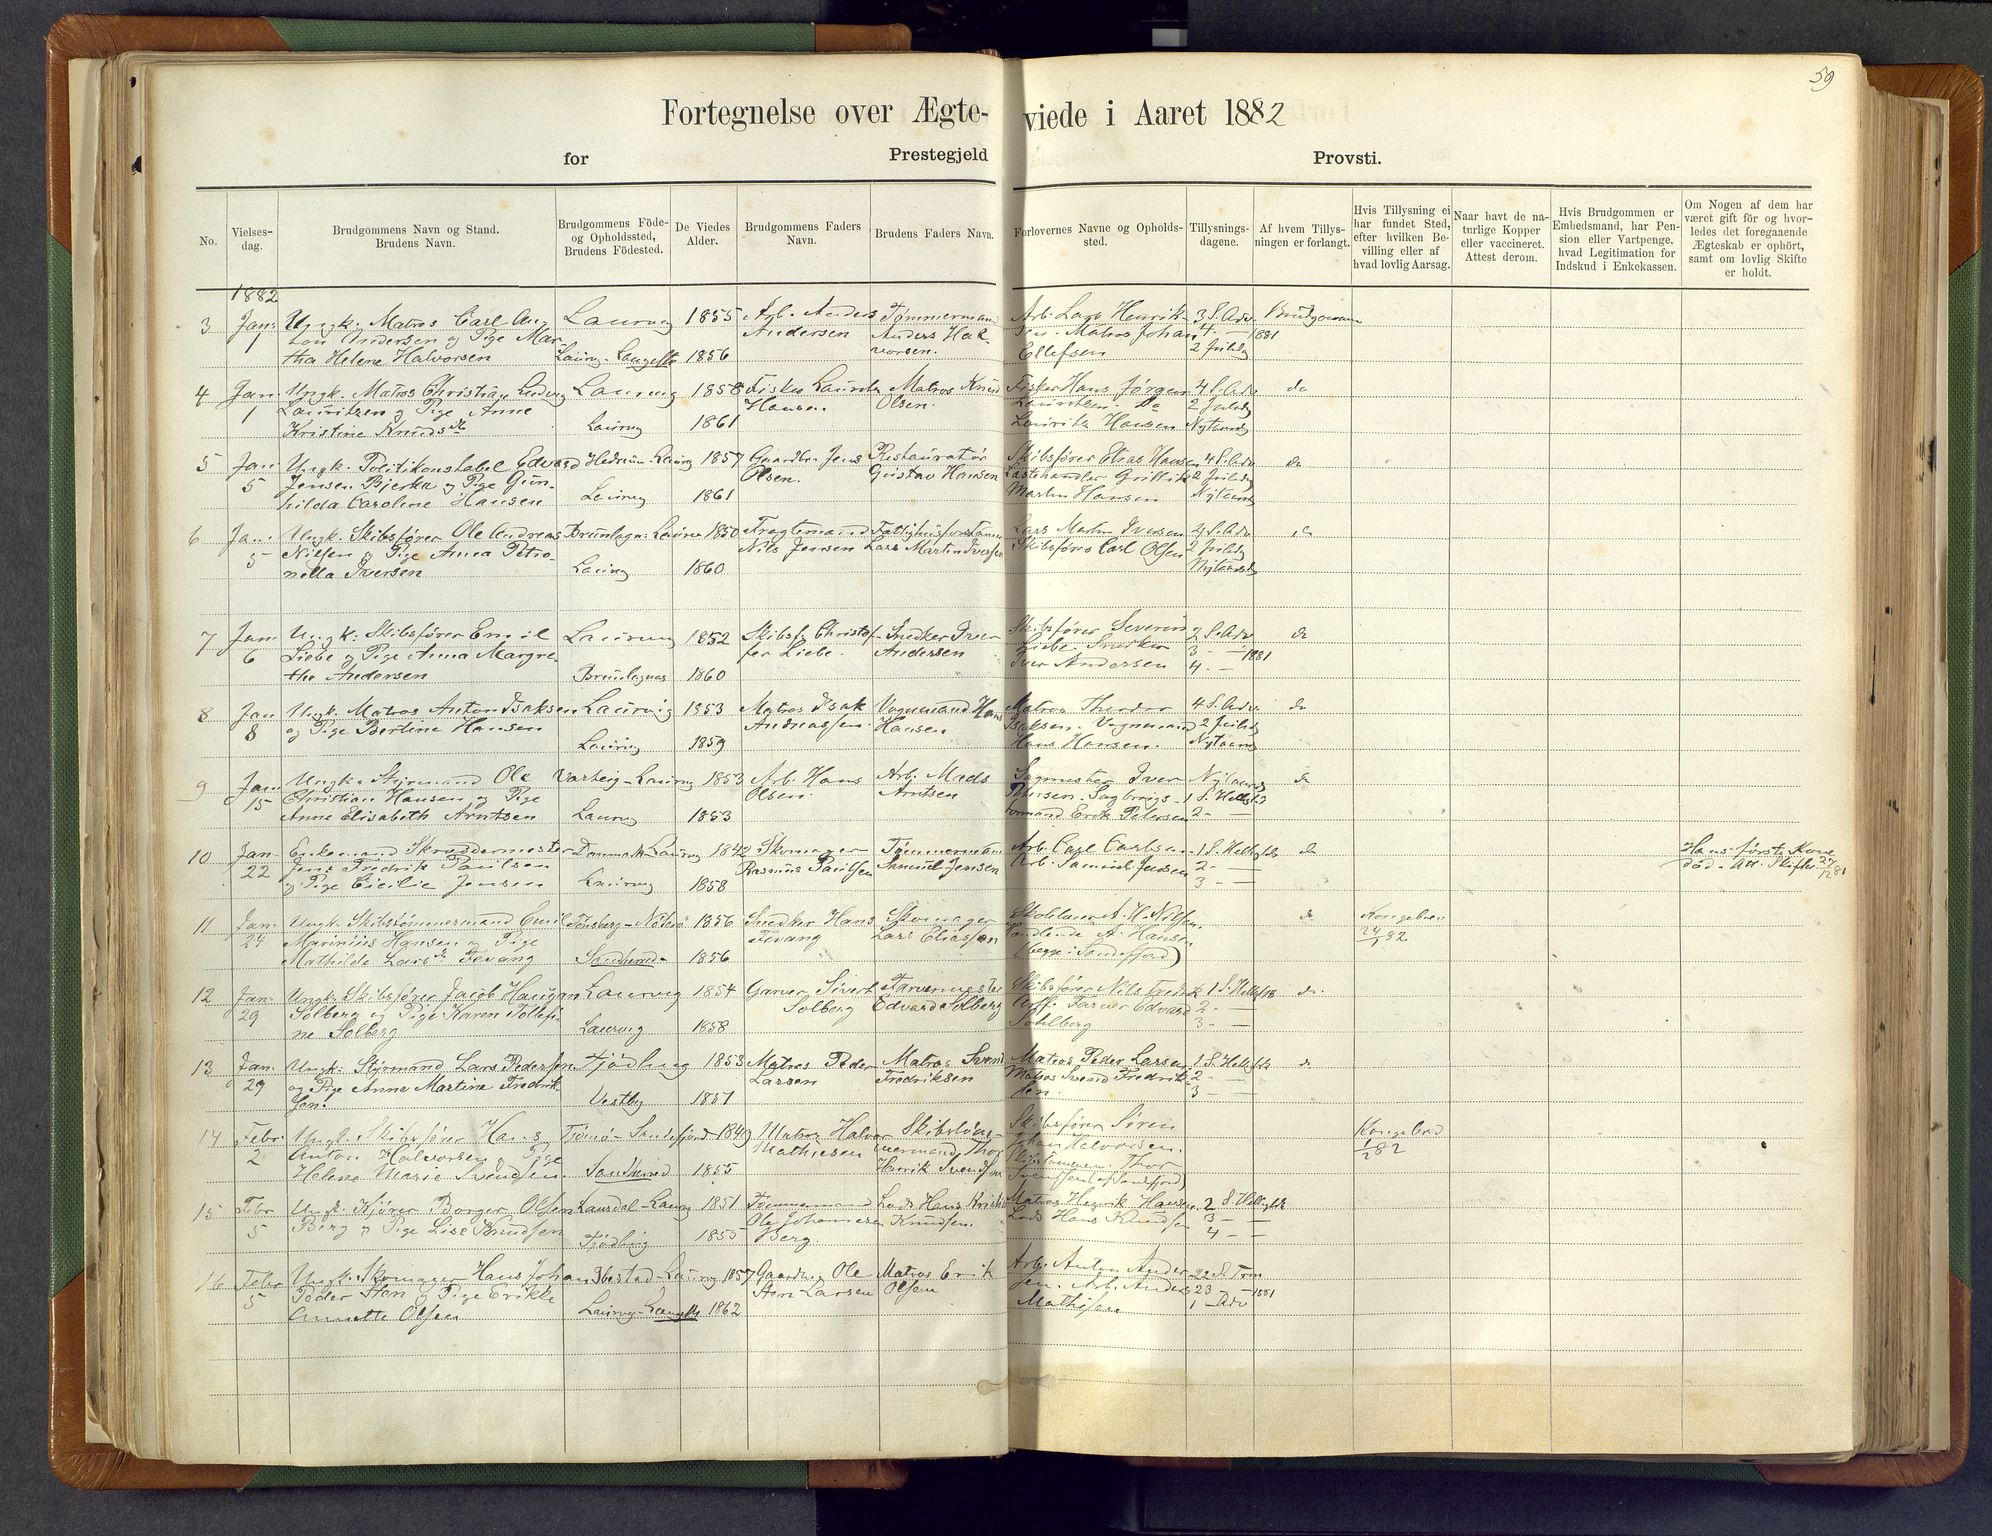 59
Fortegnelse over Ægte- viede i Aaret 1882
for Prestegjeld Provsti.
No.
Vielses-
dag.
Brudgommens Navn og Stand.
Brudens Navn.
Brudgommens Föde-
og Opholdssted,
Brudens Födested.
De Viedes
Alder.
Brudgommens Faders
Navn.
Brudens Faders Navn.
Forlovernes Navne og Opholds-
sted.
Tillysnings-
dagene.
Af hvem Tillys-
ningen er forlangt.
Hvis Tillysning ei
har fundet Sted,
efter hvilken Be-
villing eller af
hvad lovlig Aarsag.
Naar havt de na-
turlige Kopper
eller vaccineret.
Attest derom.
Hvis Brudgommen er
Embedsmand, har Pen-
sion eller Vartpenge,
hvad Legitimation for
Indskud i Enkekassen.
Om Nogen af dem har
været gift för og hvor-
ledes det foregaaende
Ægteskab er ophört,
samt om lovlig Skifte
er holdt.
1882
3 Jan. Ungk. Matros Carl An- Laurvig 1855 Arb. Anders Tømmermand Arb. Lars Henrik- 3 S. Adv. Brudgommen
1 ton Andersen og Pige Mar- Andersen Anders Hal- sen. Matros Johan 4. — 1881
tha Helene Halvorsen Laurv. Langestr 1856 vorsen. Ellefsen 2 Juledg
4 Jan. Ungk. Matros Christian Ludvig Laurvig 1858 Fisker Lauritz Matros Knud Fisker Hans Jørgen 4 S. Adv. do
1 Lauritzen og Pige Anne Hansen Olsen. Lauritsen. Do 2 Juledg
Kristine Knudsdtr Laurvig 1861 Lauritz Hansen Nytaarsdg
5 Jan. Ungk. Politikonstabel Edvard Hedrum-Laurvig 1857 Gaardbr. Jens Restauratør Skibsfører Elias Hansen 4 S. Adv. do
5 Jensen Bjerke og Pige Gun- Olsen. Gustav Hansen 2 Juledg
hilda Caroline Hansen Laurvig 1861 Martin Hansen Nytaarsdg
6 Jan. Ungk. Skibsfører Ole Andreas Brunlagn. Laurvig 1850 Fragtemand Lars Martin Iversen 4 S. Adv. do
5 Nilsen og Pige Anna Petro- Nils Jensen Lars Martin Iversen Skibsfører Carl Olsen 2 Juledg
nella Iversen Laurvig 1860 Nytaarsdg
7 Jan. Ungk. Skibsfører Emil Laurvig 1852 Skibsf. Christof- Snedker Iver Skibsfører Severin 2 S. Adv. do
6 Liebe og Pige Anna Margre- fer Liebe. Andersen Liebe. Snedker 3 - — 1881
the Andersen Brunlagnes 1860 Iver Andersen 4. —
8 Jan Ungk. Matros Anton Isaksen Laurvig 1853 Matros Isak Vognmand Hans Matros Theodor 4 S. Adv. do
8 og Pige Bertine Hansen Andreassen. Hansen Isaksen. Vognmand 2 Juledg
Laurvig 1859 Hans Hansen. Nytaarsdg
9 Jan. Ungk. Styrmand Ole Varteig-Laurvig 1853 Arb. Hans Arb. Mads Sagmester Iver Nytaarsdg do
15 Christian Hansen og Pige Olsen. Arntsen Petersen. 1 S. Helligt3
Anne Elisabeth Arntsen Laurvig 1853 Erik Petersen 2 -
10 Jan. Enkemand Skræddermester Danmark-Laurvig 1842 Skomager Tømmermand Arb. Carl Carlsen 1 S. Helligt3k do Hans første Kone
22 Jens Fredrik Paulsen Rasmus Paulsen Samuel Jensen Arb. Samuel Jensen 2 - — død. Att. Skifter. 27/12 81
og Pige Cicilie Jensen Laurvig 1858 3 - —
11 Jan. Ungk. Skibstømmermand Emil Tønsberg-Nøterø 1856 Snedker Hans Skomager Skolelærer A. H. Nilsen do Kongebrev
24 Marinius Hansen og Pige Tevang Lars Eliassen Handlende A. Hansen 24/1 82
Mathilde Larsdtr Tevang Sandherred 1856 (begge i Sandefjord)
12 Jan. Ungk. Skibsfører Jacob Haugan Laurvig 1854 Garver Sivert Farvermester Skibsfører Nils Fredrik 1 S. Helligt3k do.
29 Solberg og Pige Karen Tollefi- Solberg Edvard Solberg Farver Edvard 2 - —
ne Solberg Laurvig 1858 Sohlberg 3 - —
13 Jan. Ungk. Styrmand Lars Pedersen Tjødling 1853 Matros Peder Matros Svend Matros Peder Larsen 1 S. Helligt3k do
29 og Pige Anne Martine Fredrik- Larsen Fredriksen Matros Svend Fredrik- 2 - —
sen. Vestby 1851 sen. 3 - —
14 Febr. Ungk. Skibsfører Hans Tjømø-Sandefjord 1849 Matros Halvor Skibstøm- Skibsfører Søren Kongebrev
2 Anton Halvorsen og Pige Mathiesen mermand Thor Johan Halvorsen. 1/2 82
Helene Marie Svendsen. Sandherred 1855 Henrik Svendsen Skibstømmerm. Thor
Svendsen (af Sandefjord)
15 Febr Ungk. Kjører Borger Olsen Laurdal-Laurvig 1851 Tømmermand Lods Hans Kristian Matros Henrik Hansen. 2 S. Helligt3k
5 Berg og Pige Lise Knudsen Ole Johannesen Knudsen. Lods Hans Knudsen 3 - —
Tjødling 1855 Berg. 4 —
16 Febr Ungk. Skomager Hans Johan Ibestad-Laurvig 1857 Gaardbr. Ole Matros Erik Arb. Anton Ander- 22 S. Trin
5 Peder Sten og Pige Erikke Sten Larsen Olsen sen. Arb. Anders 23 - — 1881
Annette Olsen Laurvig-Langestr 1862 Mathisen 1 - Adv